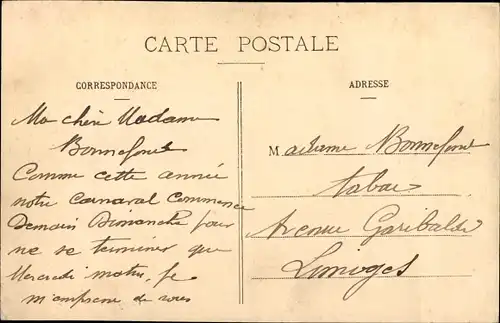 CARTE POSTALE
CORRESPONDANCE
Ma chère Madame
Bonnefond
Comme cette année
notre Carnaval commence
Demain Dimanche pour
ne se terminer que
Mercredi matin, je
m'empresse de vous
ADRESSE
Madame Bonnefond
tabac
Avenue Garibaldi
Limoges